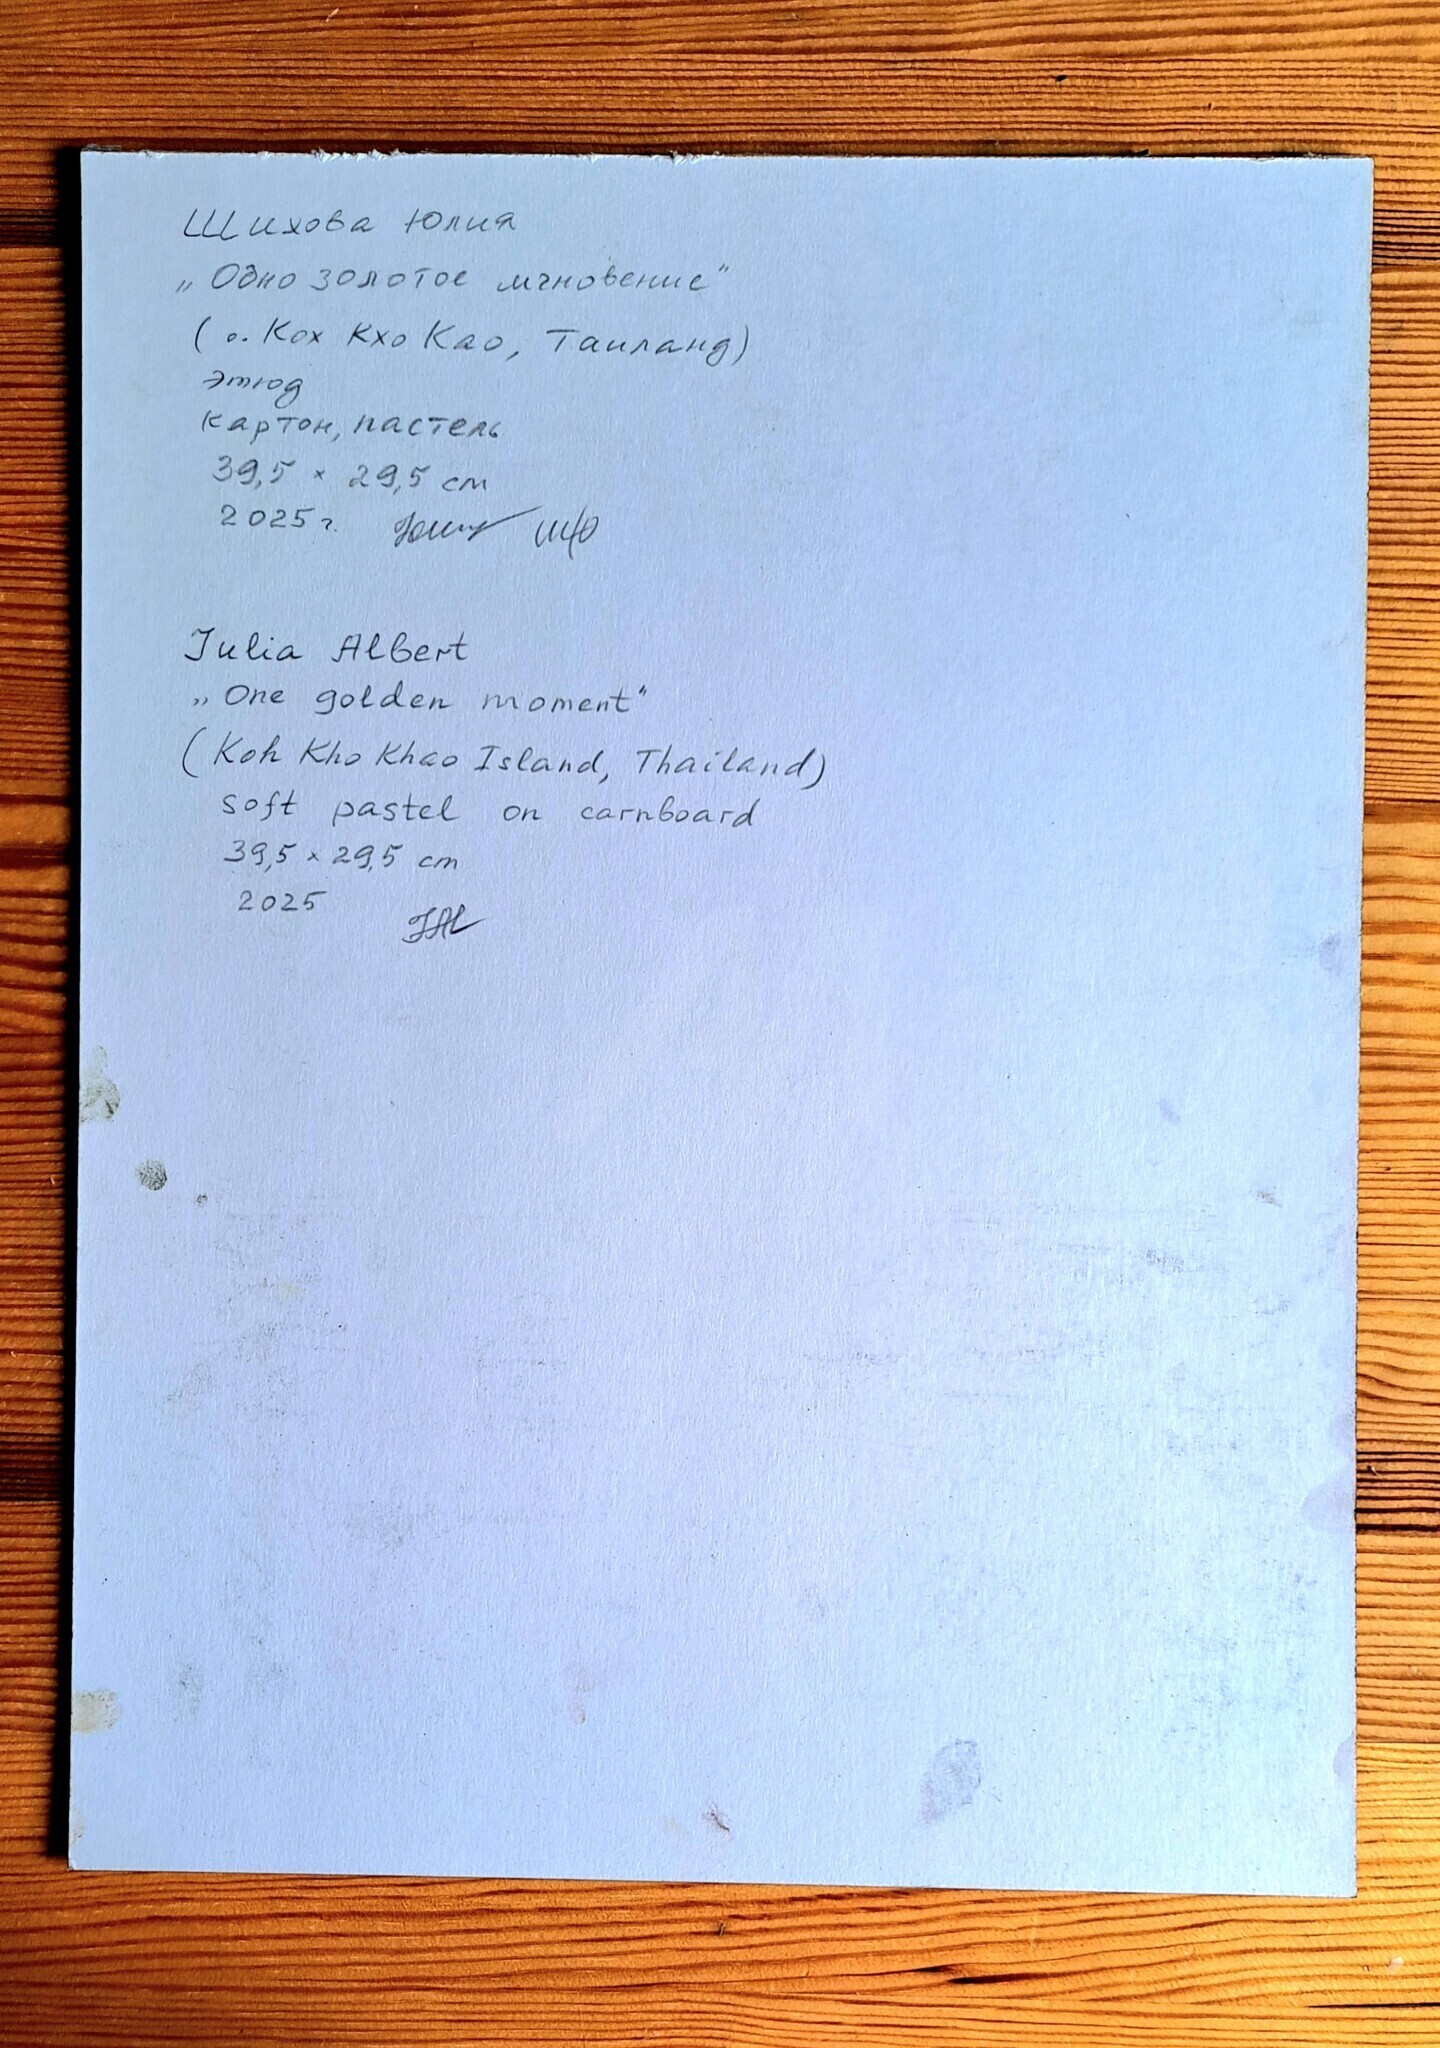 Шихова Юлия
„Одно золотое мгновение"
(о. Кох Кхо Као, Таиланд)
этюд
картон, пастель
39,5 × 29,5 см
2025г.
Julia Albert
„One golden moment"
(Koh Kho Khao Island, Thailand)
soft pastel on carnboard
39,5 × 29,5 cm
2025